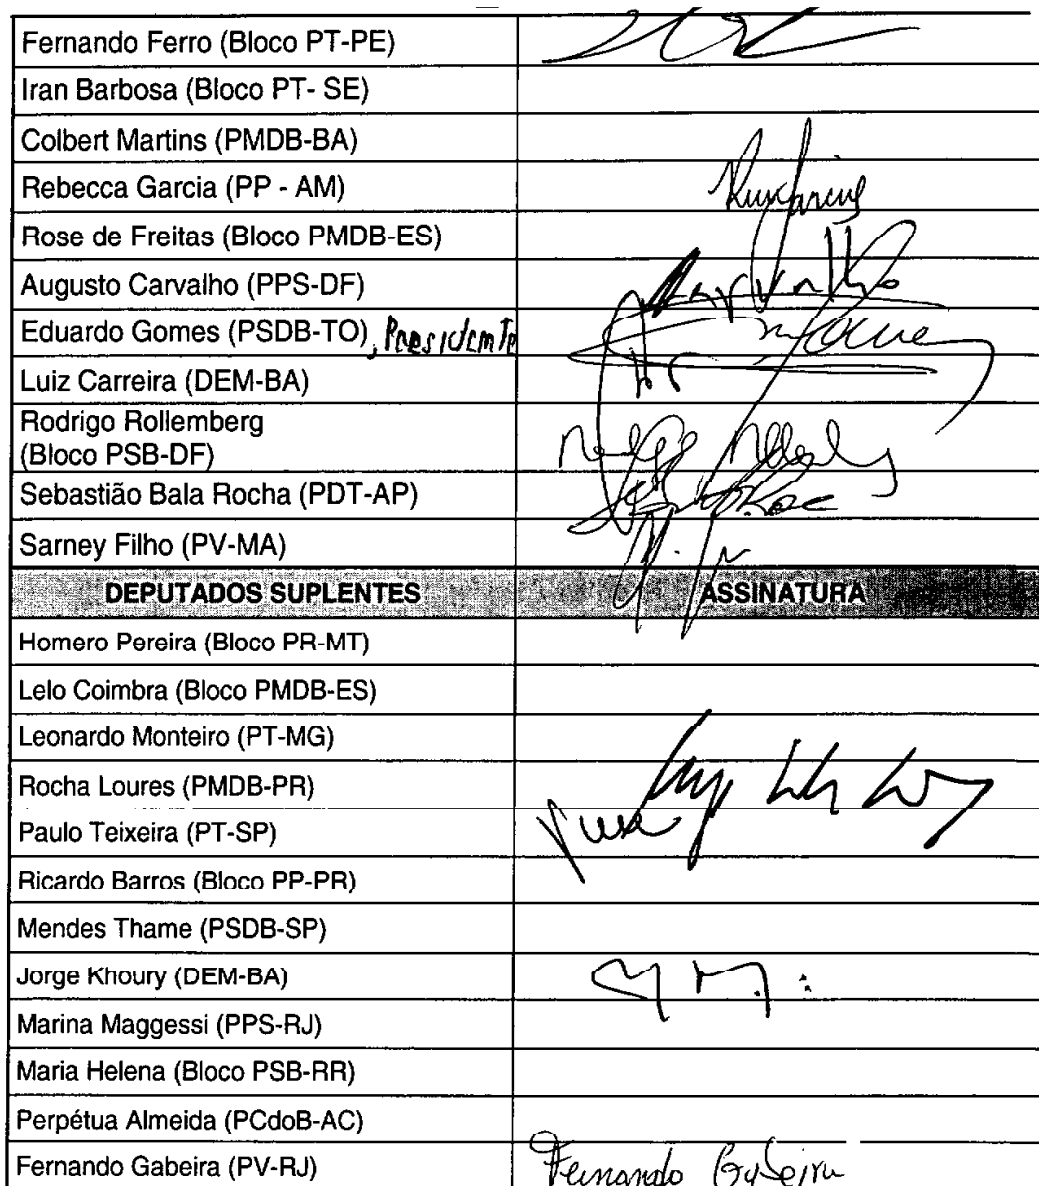 Fernando Ferro (Bloco PT-PE)
Iran Barbosa (Bloco PT- SE)
Colbert Martins (PMDB-BA)
Rebecca Garcia (PP - AM)
Rose de Freitas (Bloco PMDB-ES)
Augusto Carvalho (PPS-DF)
Eduardo Gomes (PSDB-TO), Presidente
Luiz Carreira (DEM-BA)
Rodrigo Rollemberg
(Bloco PSB-DF)
Sebastião Bala Rocha (PDT-AP)
Sarney Filho (PV-MA)
DEPUTADOS SUPLENTES ASSINATURA
Homero Pereira (Bloco PR-MT)
Lelo Coimbra (Bloco PMDB-ES)
Leonardo Monteiro (PT-MG)
Rocha Loures (PMDB-PR)
Paulo Teixeira (PT-SP)
Ricardo Barros (Bloco PP-PR)
Mendes Thame (PSDB-SP)
Jorge Khoury (DEM-BA)
Marina Maggessi (PPS-RJ)
Maria Helena (Bloco PSB-RR)
Perpétua Almeida (PCdoB-AC)
Fernando Gabeira (PV-RJ) Fernando Gabeira